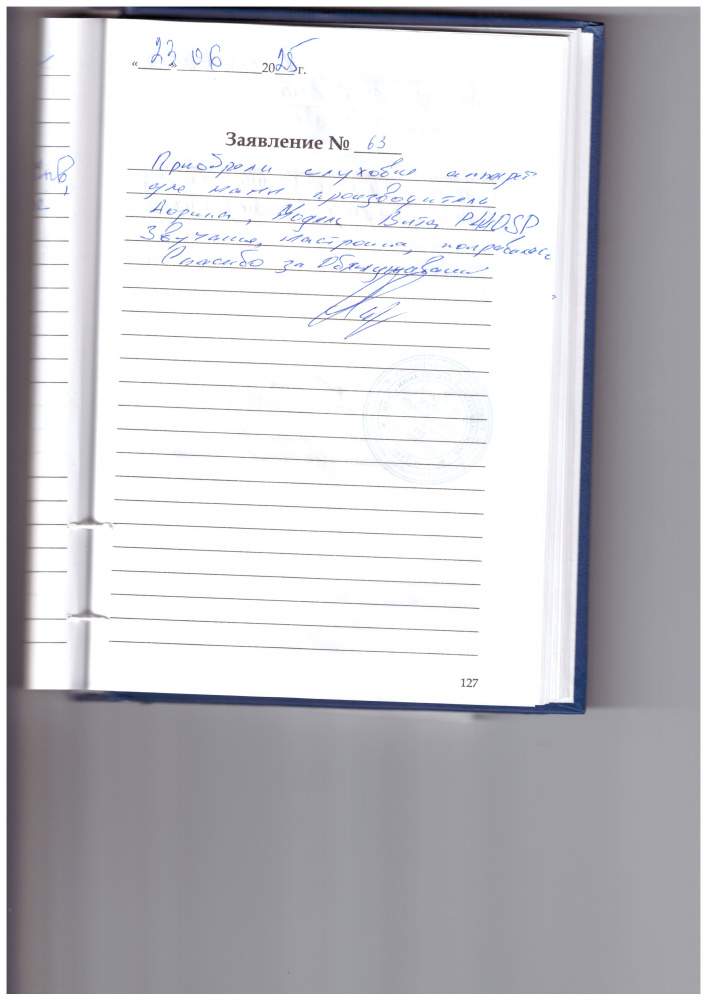 «23» 06 2025 г.
Заявление № 63
Приобрели слуховой аппарат
для мамы производитель
Аурика, Модель Вита P44DSP
Звучание, настройка, понравилось
Спасибо за Обслуживание
127